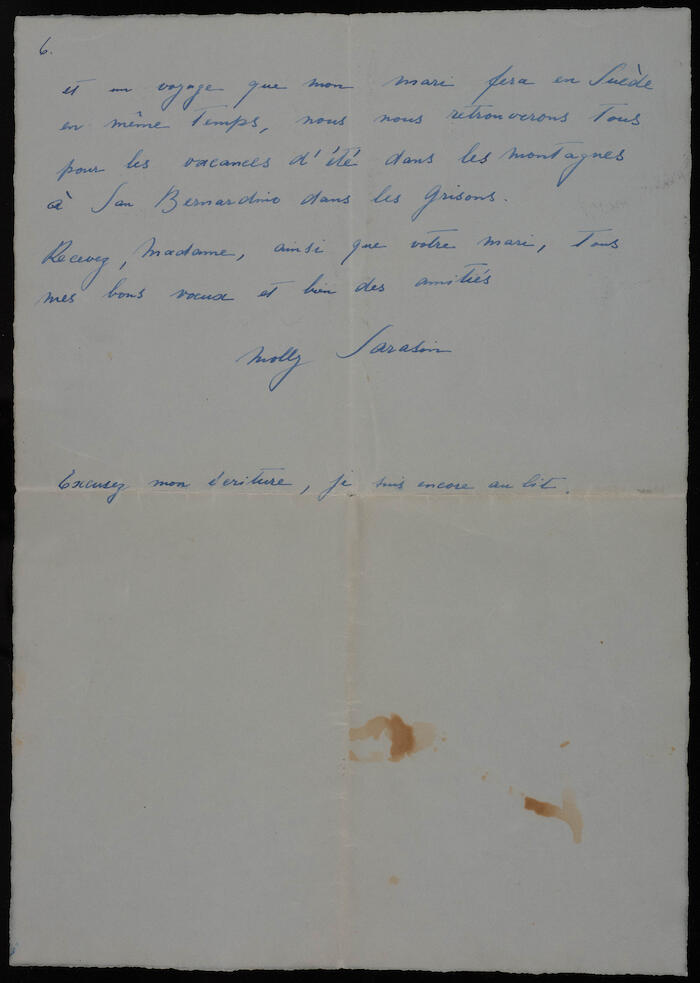 6.
et un voyage que mon mari fera en Suède
en même temps, nous nous retrouverons tous
pour les vacances d'été dans les montagnes
à San Bernardino dans les Grisons.
Recevez, Madame, ainsi que votre mari, tous
mes bons voeux et bien des amitiés
Molly Sarasin
Excusez mon écriture, je suis encore au lit.